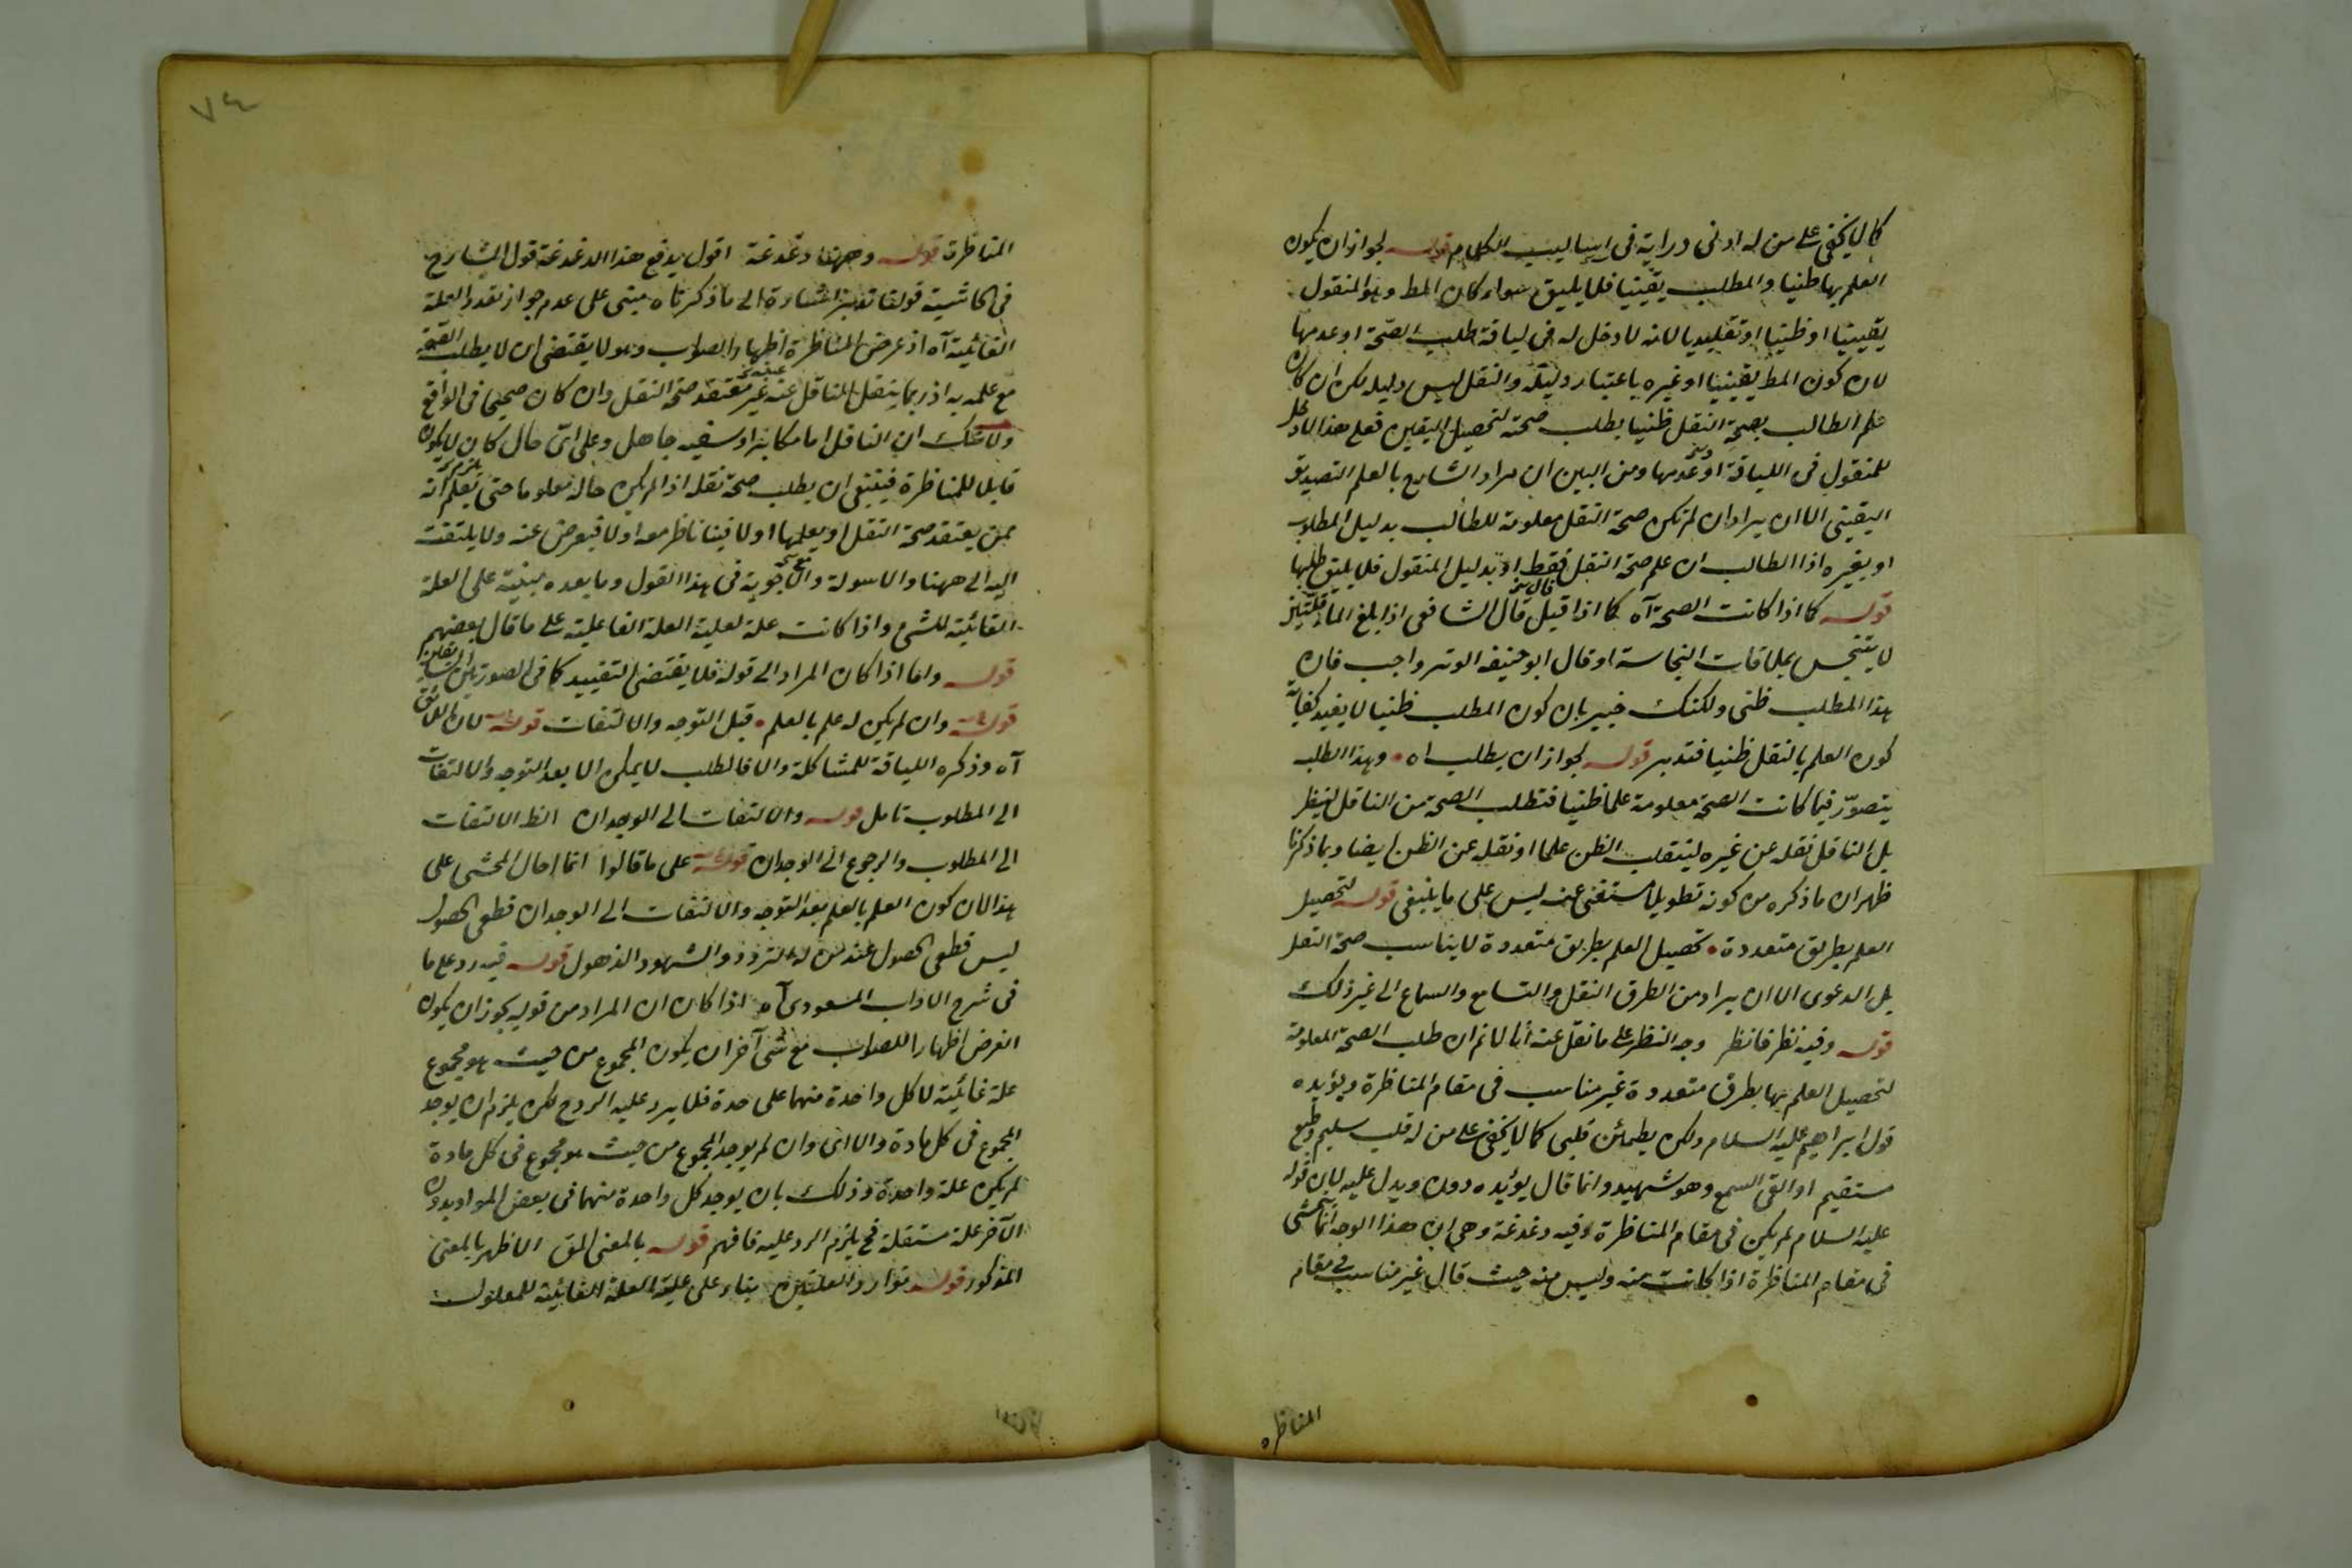 كما لا يخفى على من له ادنى دراية فى اساليب الكلام قوله لجواز ان يكون
العلم بها ظنيا والمطلب يقينيا فلا يليق سواء كان المط وهو المنقول
يقينيا او ظنيا او تقليديا لانه لا دخل له فى لياقة طلب الصحة او عدمها
لان كون المط يقينيا او غيره باعتبار دليله والنقل ليس دليله لكن ان كان
علم الطالب بصحة النقل ظنيا يطلب صحته لتحصيل اليقين فعلم هذا لا دخل
للمنقول فى اللياقة او عدمها ومن البين ان مراد الشارح بالعلم التصديق
اليقينى الا ان يراد ان لم تكن صحة النقل معلومة للطالب بدليل المطلوب
او بغيره اذا الطالب ان علم صحة النقل فقط او بدليل المنقول فلا يليق طلبها
قوله كما اذا كانت الصحة آه كما اذا قيل قال الشافعى اذا بلغ الماء قلتين
لا يتنجس بملاقات النجاسة او قال ابو حنيفه الوتر واجب فان
هذا المطلب ظنى ولكنك خبير بان كون المطلب ظنيا لا يفيد كفاية
كون العلم بالنقل ظنيا فتدبر قوله لجواز ان يطلب اه وهذا الطلب
يتصور فيما كانت الصحة معلومة علما ظنيا فتطلب الصحة من الناقل لينظر
بل الناقل نقله عن غيره لينقلب الظن علما او نقله عن الظن ايضا وبما ذكرنا
ظهر ان ما ذكره من كونه تطويلا مستغنى عنه ليس على ما ينبغى قوله لتحصيل
العلم بطريق متعددة تحصيل العلم بطريق متعددة لا يناسب صحة النقل
بل الدعوى الا ان يراد من الطرق النقل والتسامع والسماع الى غير ذلك
قوله وفيه نظر فانظر وجه النظر على ما نقل عنه انا لا نم ان طلب الصحة المعلومة
لتحصيل العلم بها بطرق متعددة غير مناسب فى مقام المناظرة ويؤيده
قول ابراهيم عليه السلام ولكن يطمئن قلبى كما لا يخفى على من له قلب سليم وطبع
مستقيم او القى السمع وهو شهيد وانما قال يؤيده دون ويدل عليه لان قوله
عليه السلام لم يكن فى مقام المناظرة وفيه دغدغة وهى ان هذا الوجه انما يتمشى
فى مقام المناظرة اذا كانت منه وليس منه حيث قال غير مناسب فى مقام
المناظره
٧٤
المناظرة قوله وههنا دغدغة اقول يدفع هذا الدغدغة قول الشارح
فى الحاشية قولنا تدبر اشارة الى ما ذكرناه مبنى على عدم جواز تعدد العلة
الغائية آه اذ غرض المناظرة اظهار الصواب وهو لا يقتضى ان لا يطلب الصحة
مع علمه به اذ ربما ينقل الناقل عنه غير معتقد صحة النقل وان كان صحيحا فى الواقع
ولا شك ان الناقل اما مكابر او سفيه جاهل وعلى اى حال كان لا يكون
قابلا للمناظرة فينبغى ان يطلب صحة نقله اذا لم يكن حاله معلوما حتى يعلم انه
ممن يعتقد صحة النقل او يعلمها اولا فيناظر معه اولا فيعرض عنه ولا يلتفت
اليه الى ههنا والاسولة والاجوبة فى هذا القول وما بعده مبنية على العلة
الغائية للشئ واذا كانت علة لعلية العلة الفاعلية على ما قال بعضهم
قوله واما اذا كان المراد الى قوله فلا يقتضى التقييد كما فى الصورتين السابقتين
قوله وان لم يكن له علم بالعلم قبل التوجه والالتفات قوله لان اللائق
آه وذكره اللياقة للمشاكلة والا فالطلب لا يمكن الا بعد التوجه والالتفات
الى المطلوب تامل قوله والالتفات الى الوجدان الظ الالتفات
الى المطلوب والرجوع الى الوجدان قوله على ما قالوا انما احال المحشى على
هذا لان كون العلم بالعلم بعد التوجه والالتفات الى الوجدان قطعى الحصول
ليس قطعى الحصول عند من له التردد والشهود الذهول قوله فيه رد على ما
فى شرح الاداب المسعودى آه اذا كان ان المراد من قوله يجوز ان يكون
الغرض اظهارا للصواب مع شئ آخر ان يكون المجموع من حيث هو مجموع
علة غائية لا كل واحدة منهما على حدة فلا يرد عليه الردح لكن يلزم ان يوجد
المجموع فى كل مادة والا اى وان لم يوجد المجموع من حيث هو مجموع فى كل مادة
لم يكن علة واحدة وذلك بان يوجد كل واحدة منهما فى بعض المواد بدون
الآخر علة مستقلة فح يلزم الرد عليه فافهم قوله بالمعنى المق الاظهر بالمعنى
المذكور قوله توارد العلتين بناء على علية العلة الغائية للمعلول